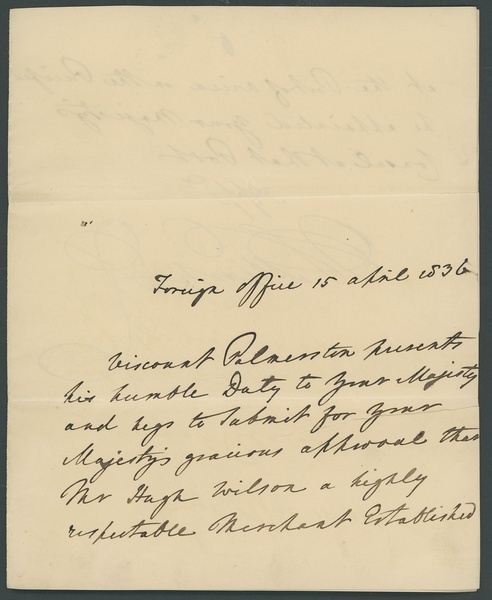 Foreign office 15 april 1836
Viscount Palmerston presents
his humble Duty to Your Majesty
and begs to Submit for Your
Majesty's gracious approval that
Mr Hugh Wilson a highly
respectable Merchant Established